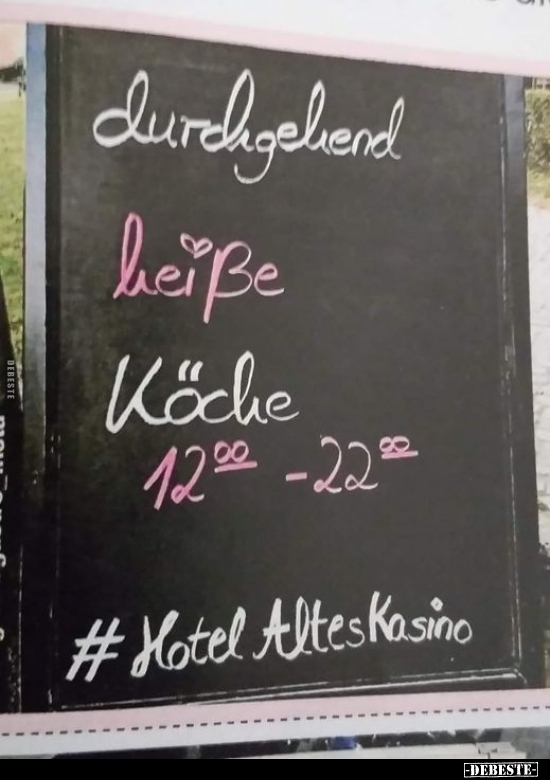 durchgehend
heiße
Köche
12⁰⁰ - 22⁰⁰
# Hotel Altes Kasino
DEBESTE
-DEBESTE-